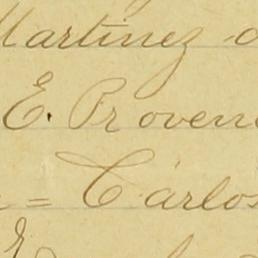 Martinez
E. Proven
= Cárlos